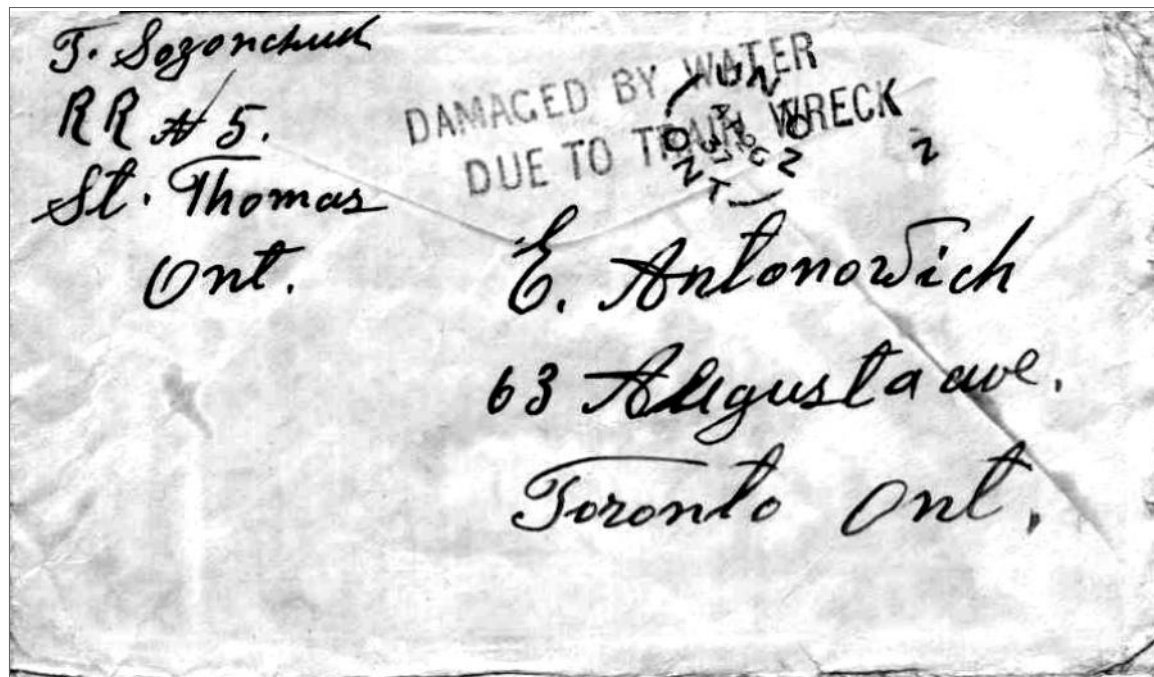 T. Sozonchuk
RR # 5.
St. Thomas
Ont.
DAMAGED BY WATER
DUE TO TRAIN WRECK
ONT
E. Antonowich
63 Augusta ave.
Toronto Ont.